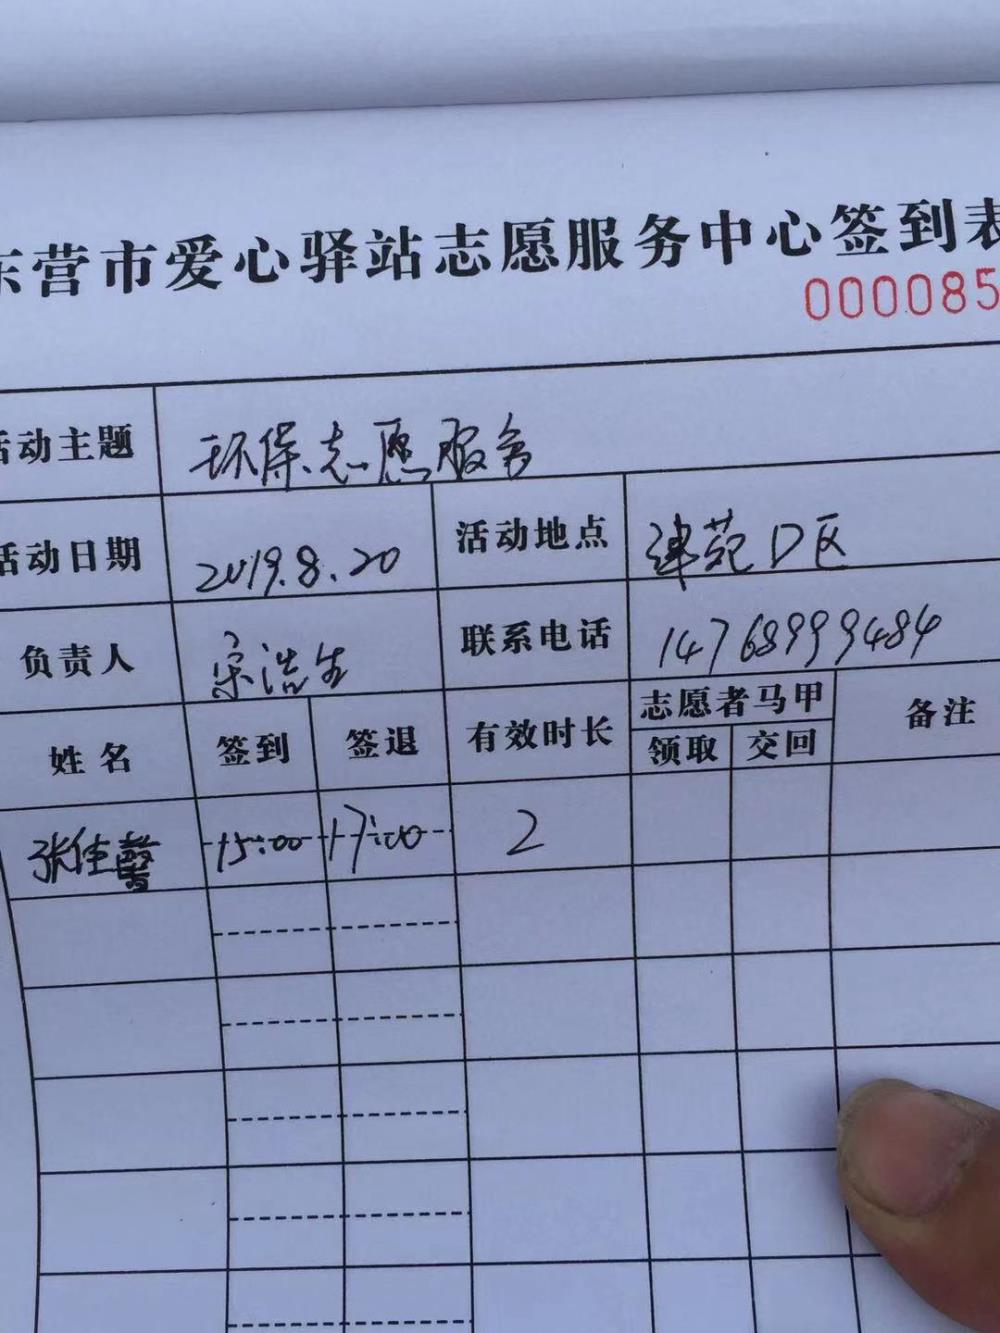 东营市爱心驿站志愿服务中心签到表
000085
活动主题 环保志愿服务
活动日期 2019.8.20 活动地点 建苑D区
负责人 宗浩生 联系电话 14768999484
姓名 签到 签退 有效时长 志愿者马甲 备注
领取 交回
张佳馨 15:00 17:00 2